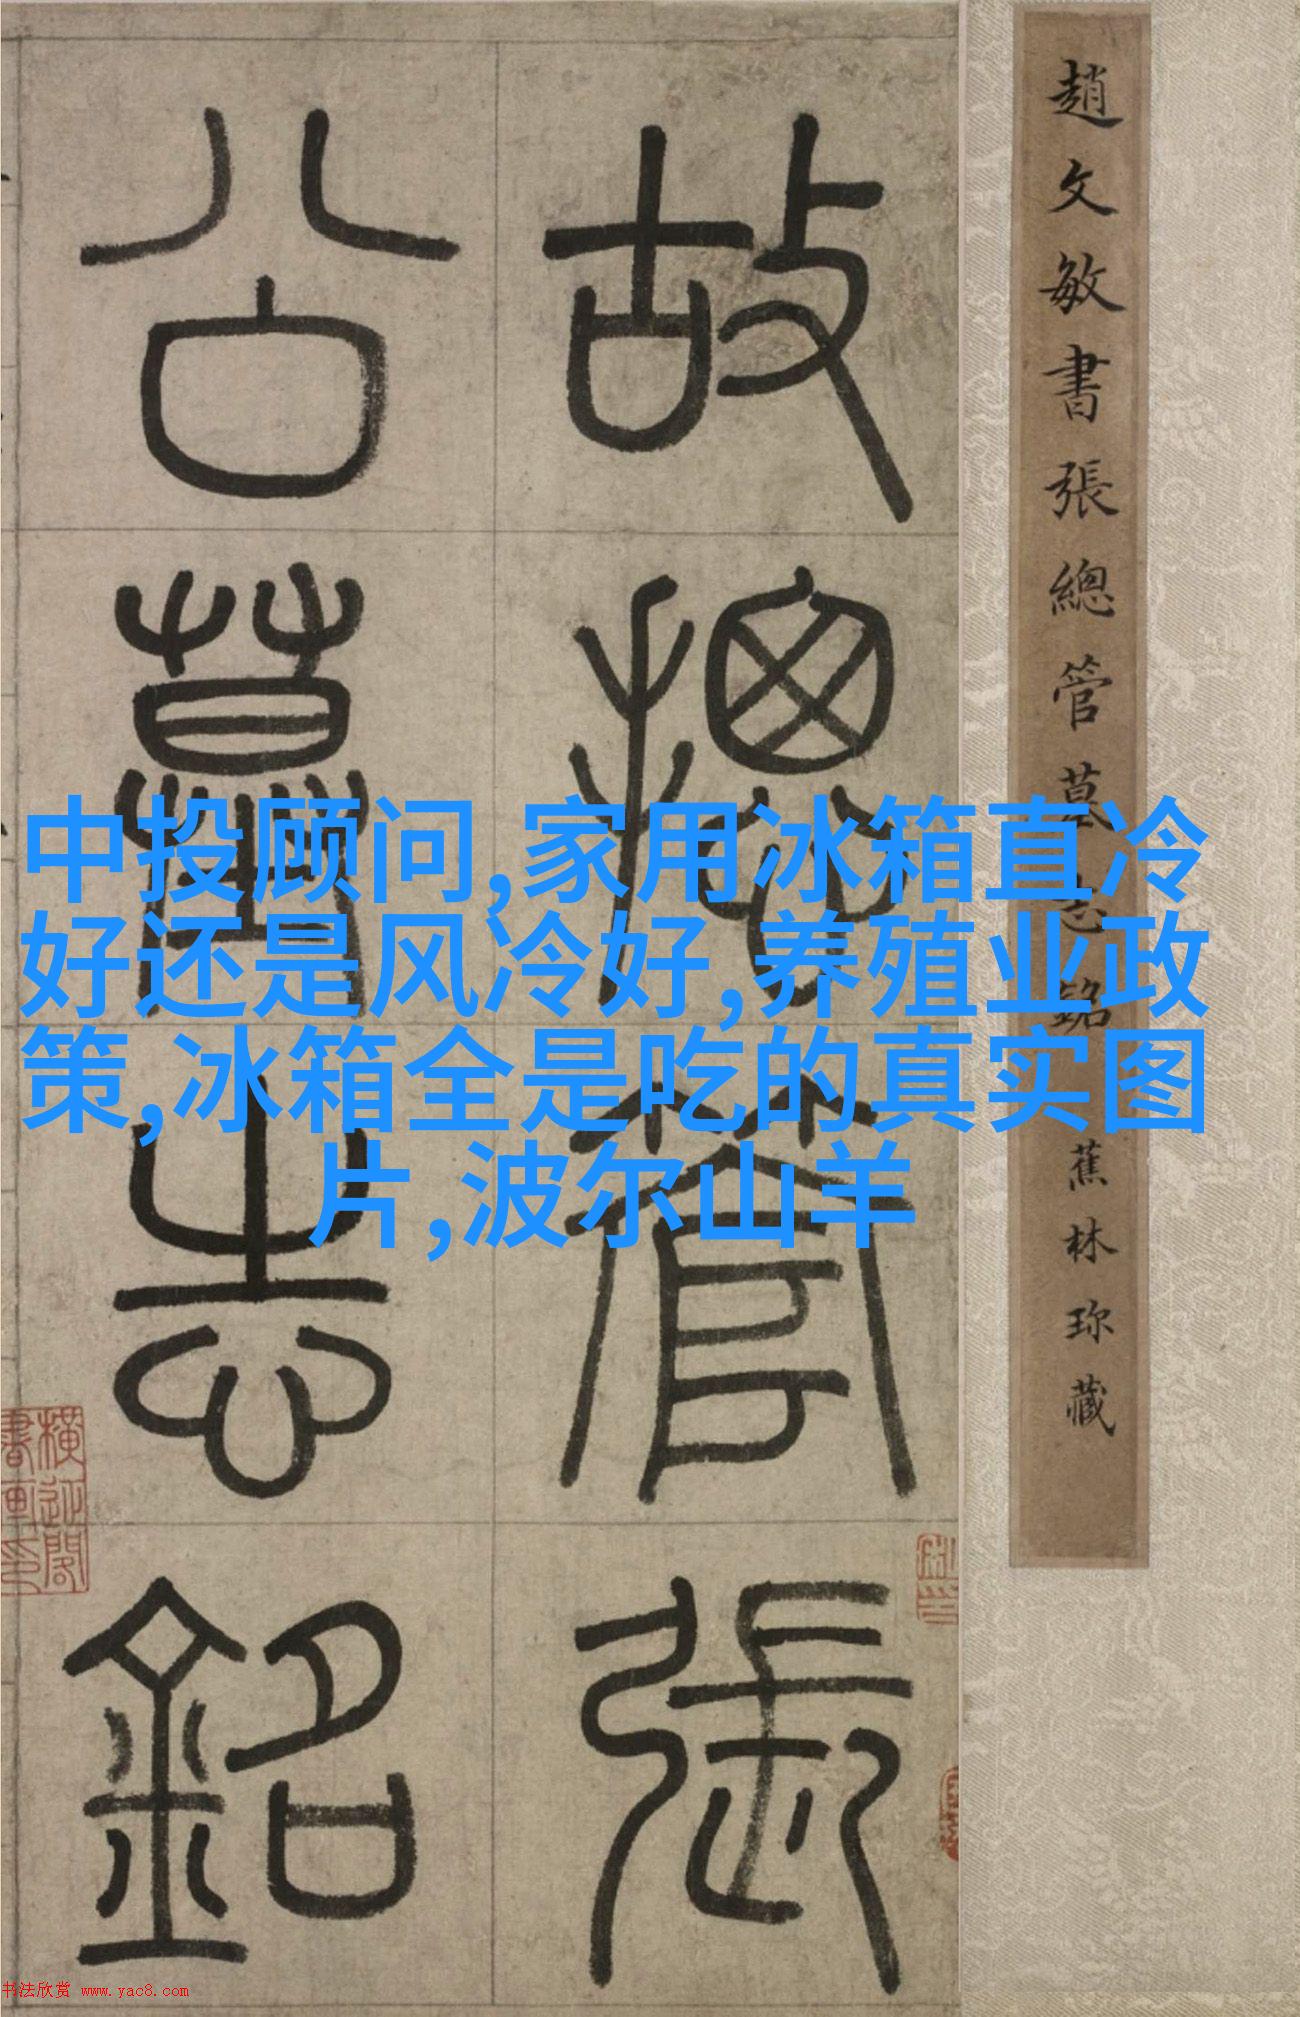 趙文敏書張總管墓志銘
蕉林珍藏
故總管張
公墓志銘
中投顾问,家用冰箱直冷
好还是风冷好,养殖业政
策,冰箱全是吃的真实图
片,波尔山羊
书法欣赏 www.yac8.com